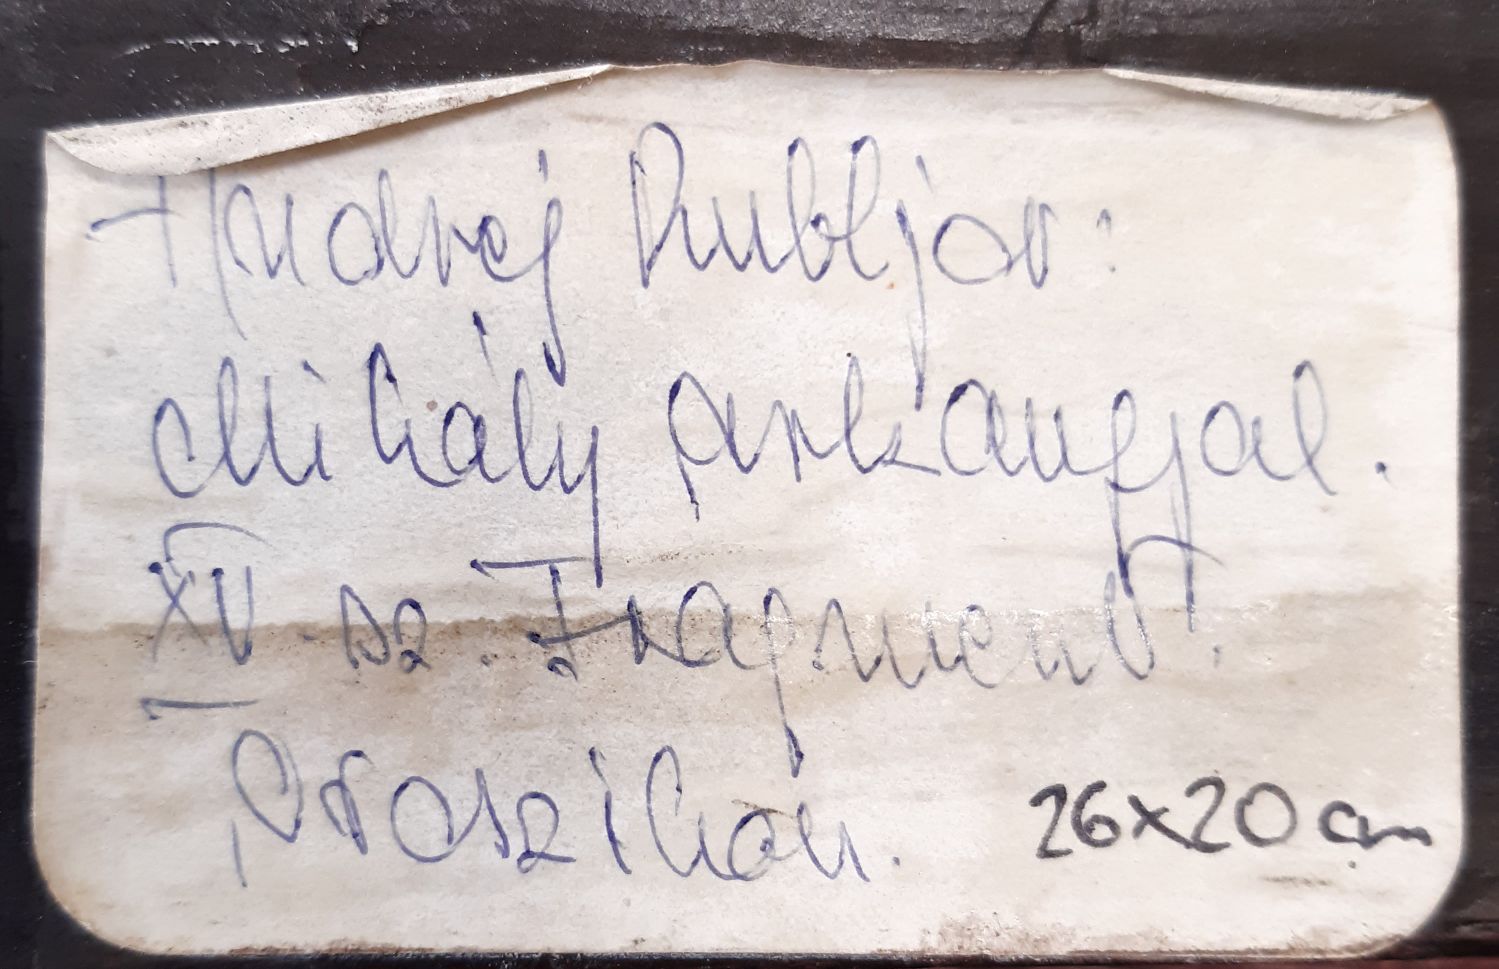 Andrej Rubljov:
Mihály Arkangyal.
XV. sz. Fragment.
Orosz ikon. 26x20 cm